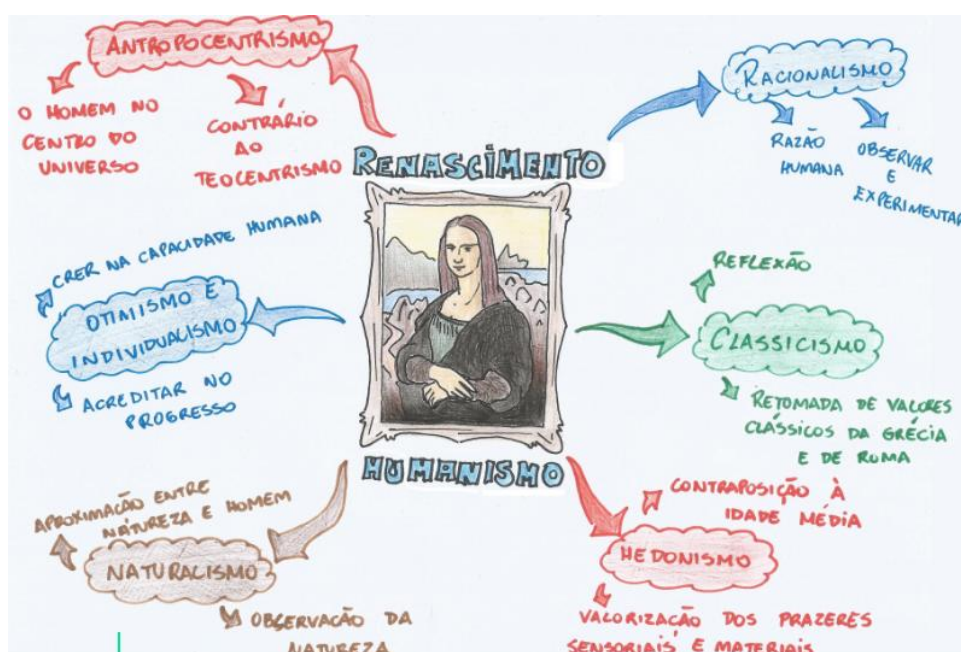 ANTROPOCENTRISMO
O HOMEM NO
CENTRO DO
UNIVERSO
CONTRÁRIO
AO
TEOCENTRISMO
RENASCIMENTO
HUMANISMO
RACIONALISMO
RAZÃO
HUMANA
OBSERVAR
E
EXPERIMENTAR
CRER NA CAPACIDADE HUMANA
OTIMISMO E
INDIVIDUALISMO
ACREDITAR NO
PROGRESSO
REFLEXÃO
CLASSICISMO
RETOMADA DE VALORES
CLÁSSICOS DA GRÉCIA
E DE ROMA
APROXIMAÇÃO ENTRE
NATUREZA E HOMEM
NATURALISMO
OBSERVAÇÃO DA
NATUREZA
CONTRAPOSIÇÃO À
IDADE MÉDIA
HEDONISMO
VALORIZAÇÃO DOS PRAZERES
SENSORIAIS E MATERIAIS